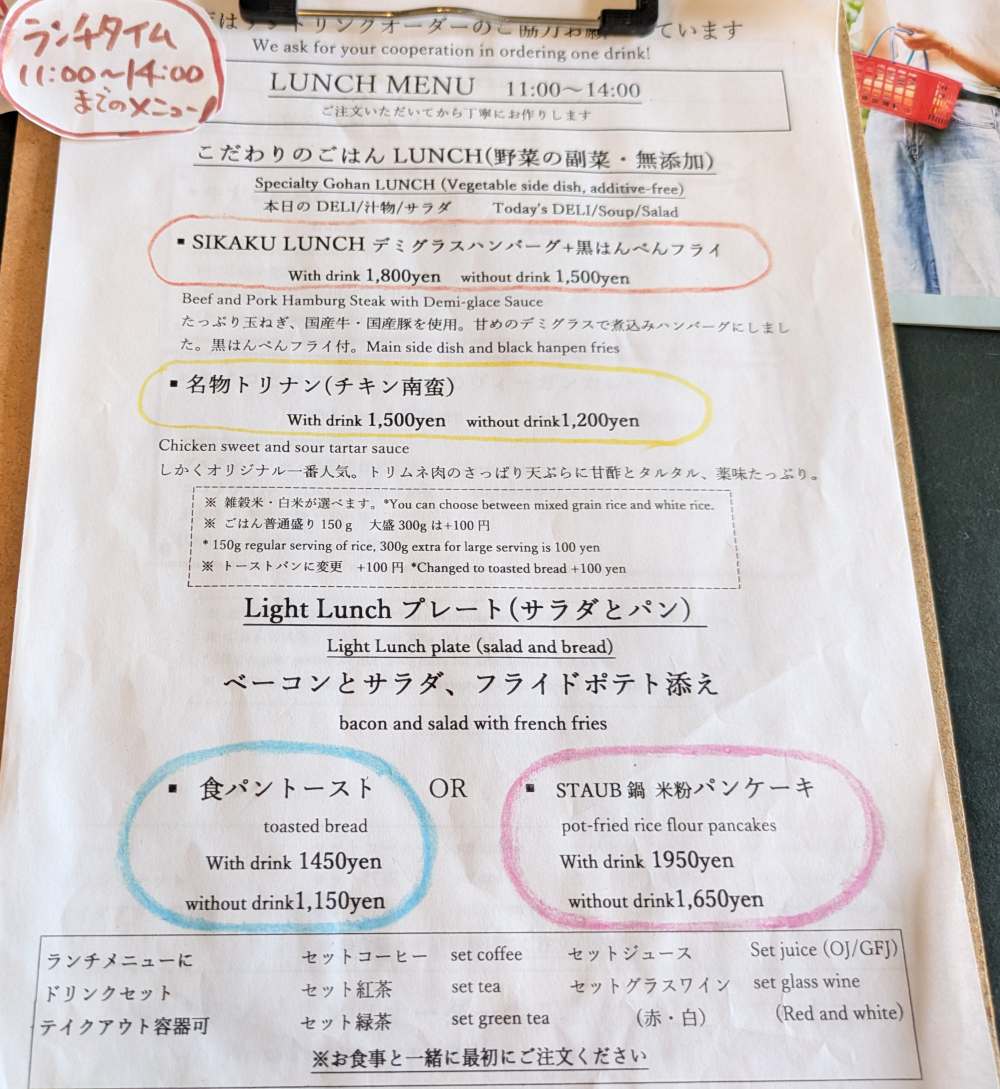 ランチタイム
11:00〜14:00
までのメニュー
はワンドリンクオーダーのご協力お願 ています
We ask for your cooperation in ordering one drink!
LUNCH MENU 11:00〜14:00
ご注文いただいてから丁寧にお作りします
こだわりのごはん LUNCH(野菜の副菜・無添加)
Specialty Gohan LUNCH (Vegetable side dish, additive-free)
本日の DELI/汁物/サラダ Today's DELI/Soup/Salad
▪ SIKAKU LUNCH デミグラスハンバーグ+黒はんぺんフライ
With drink 1,800yen without drink 1,500yen
Beef and Pork Hamburg Steak with Demi-glace Sauce
たっぷり玉ねぎ、国産牛・国産豚を使用。甘めのデミグラスで煮込みハンバーグにしまし
た。黒はんぺんフライ付。Main side dish and black hanpen fries
▪ 名物トリナン(チキン南蛮)
With drink 1,500yen without drink1,200yen
Chicken sweet and sour tartar sauce
しかくオリジナル一番人気。トリムネ肉のさっぱり天ぷらに甘酢とタルタル、薬味たっぷり。
※ 雑穀米・白米が選べます。*You can choose between mixed grain rice and white rice.
※ ごはん普通盛り 150g 大盛 300g は+100 円
* 150g regular serving of rice, 300g extra for large serving is 100 yen
※ トーストパンに変更 +100 円 *Changed to toasted bread +100 yen
Light Lunch プレート(サラダとパン)
Light Lunch plate (salad and bread)
ベーコンとサラダ、フライドポテト添え
bacon and salad with french fries
▪ 食パントースト OR ▪ STAUB 鍋 米粉パンケーキ
toasted bread pot-fried rice flour pancakes
With drink 1450yen With drink 1950yen
without drink1,150yen without drink1,650yen
ランチメニューに セットコーヒー set coffee セットジュース Set juice (OJ/GFJ)
ドリンクセット セット紅茶 set tea セットグラスワイン set glass wine
テイクアウト容器可 セット緑茶 set green tea (赤・白) (Red and white)
※お食事と一緒に最初にご注文ください